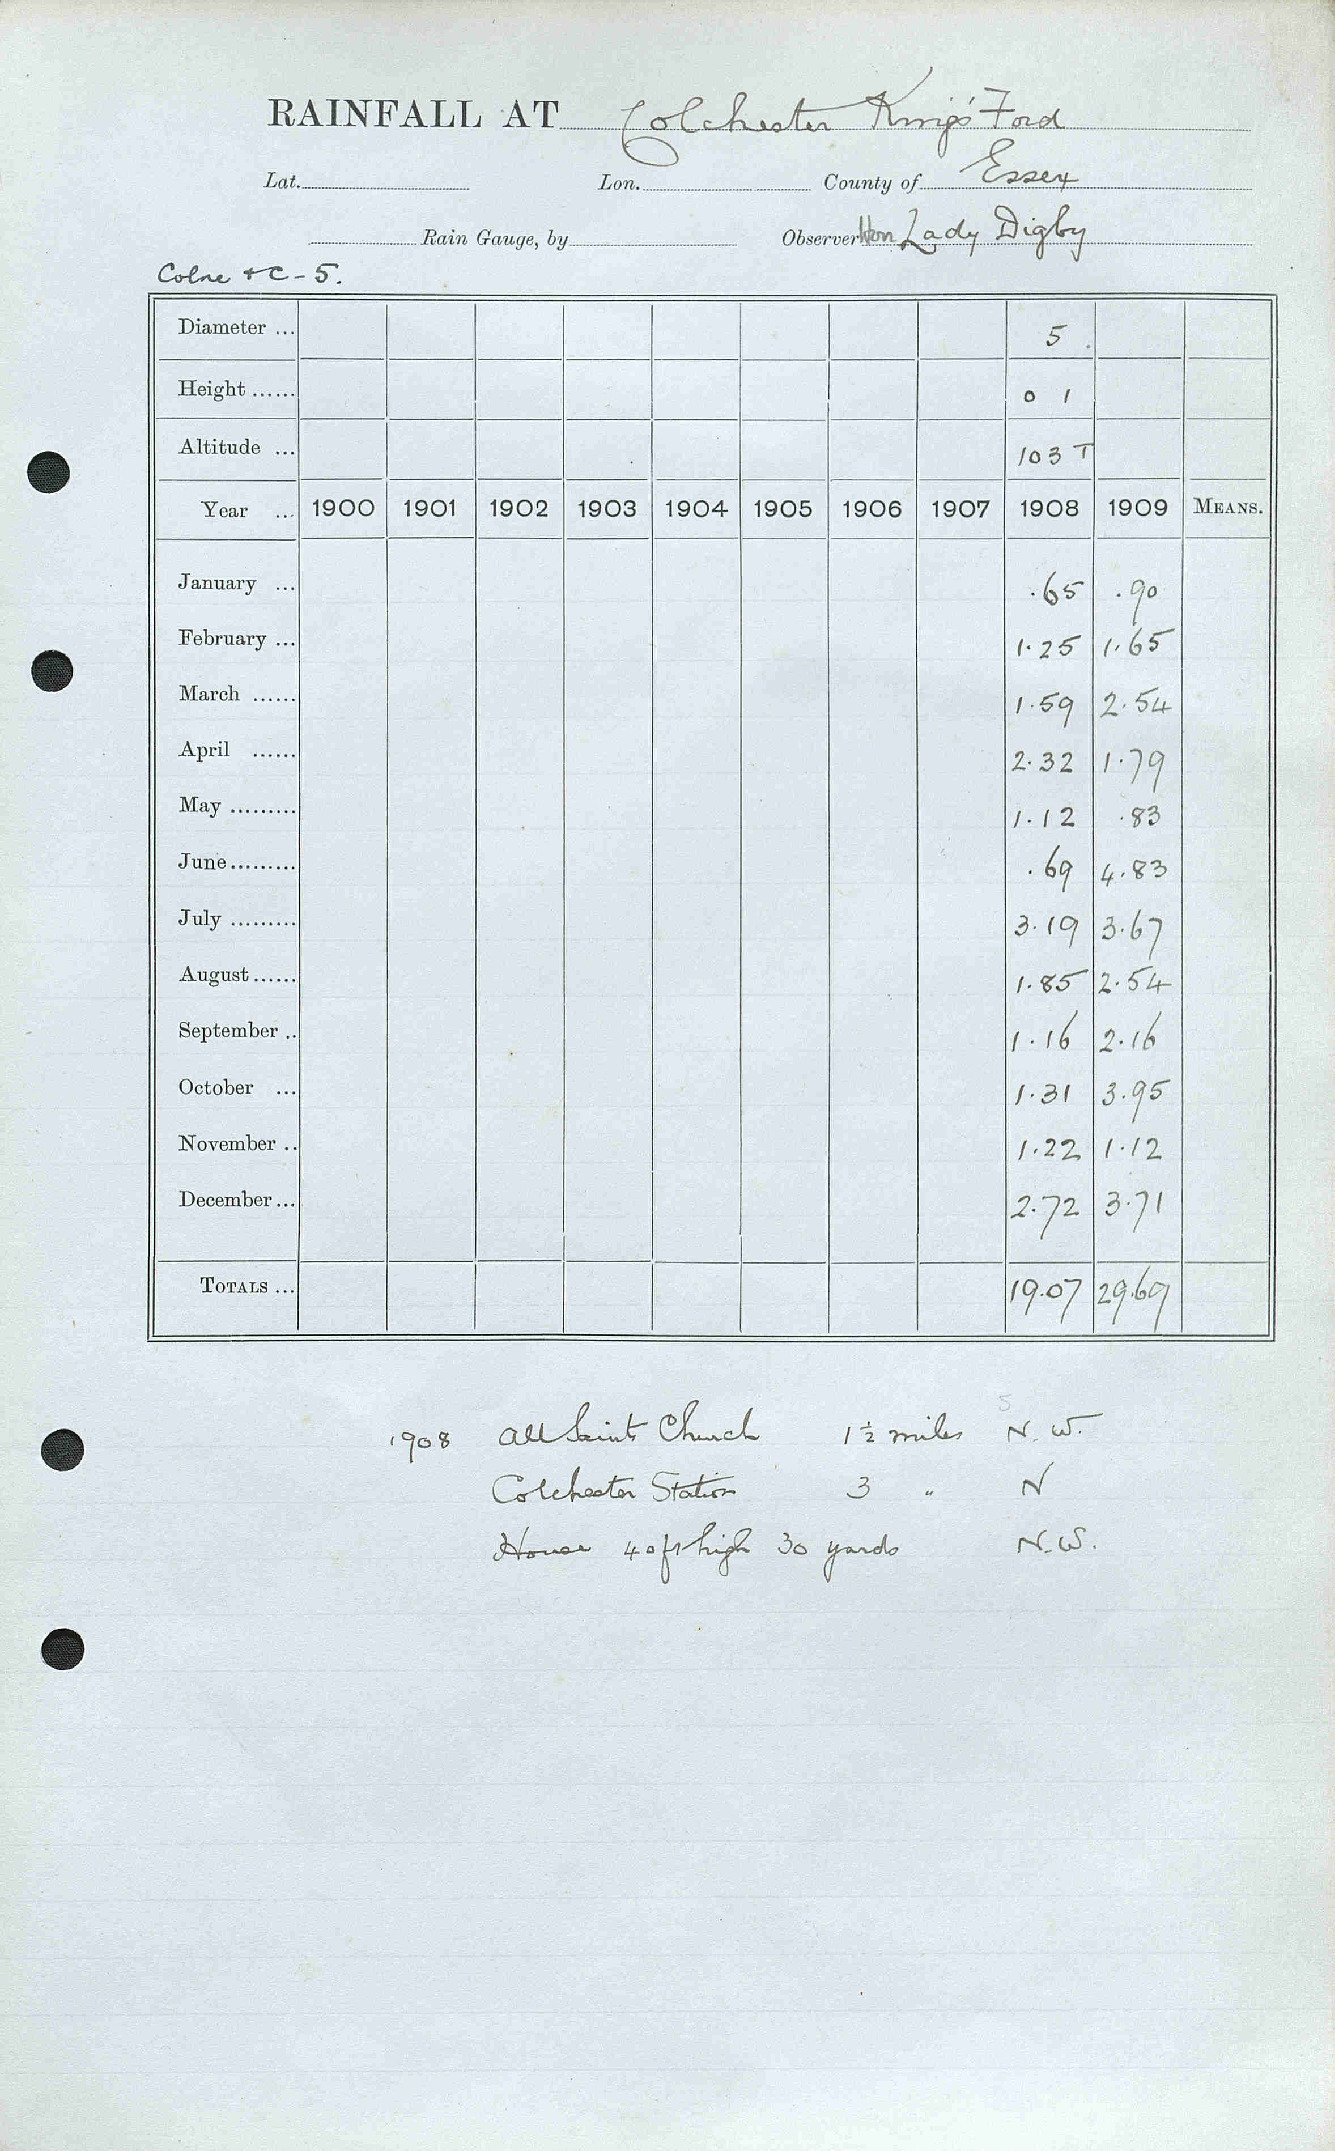 RAINFALL AT Colchester King's Ford
Lat. Lon. County of Essex
Rain Gauge, by Observer Hon Lady Digby
Colne + C - 5.
Diameter ... 5
Height ...... 0 1
Altitude ... 103 T
Year ... 1900 1901 1902 1903 1904 1905 1906 1907 1908 1909 MEANS.
January ... .65 .90
February ... 1.25 1.65
March ...... 1.59 2.54
April ...... 2.32 1.79
May ......... 1.12 .83
June ......... .69 4.83
July ......... 3.19 3.67
August ...... 1.85 2.54
September .. 1.16 2.16
October ... 1.31 3.95
November .. 1.22 1.12
December ... 2.72 3.71
TOTALS ... 19.07 29.69
1908 All Saints Church 1½ miles N.W.
Colchester Station 3 " N
House 40 ft high 30 yards N.W.